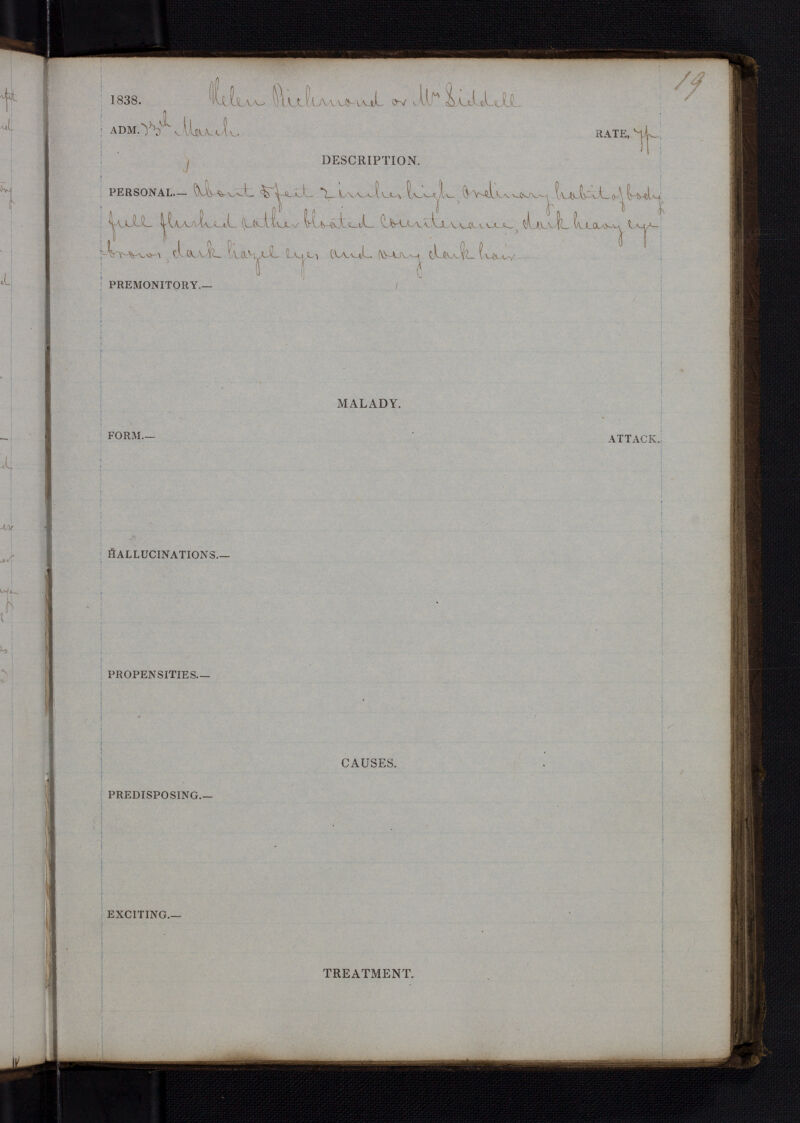 19
1838. Helen Richmond or Mrs Siddell
ADM. March RATE,
DESCRIPTION.
PERSONAL.— About 5 feet 2 inches high, Ordinary habit of body
full flushed rather bloated Countenance, dark heavy eye
brows, dark hazel eyes and very dark hair
PREMONITORY.—
MALADY.
FORM.— ATTACK.
HALLUCINATIONS.—
PROPENSITIES.—
CAUSES.
PREDISPOSING.—
EXCITING.—
TREATMENT.